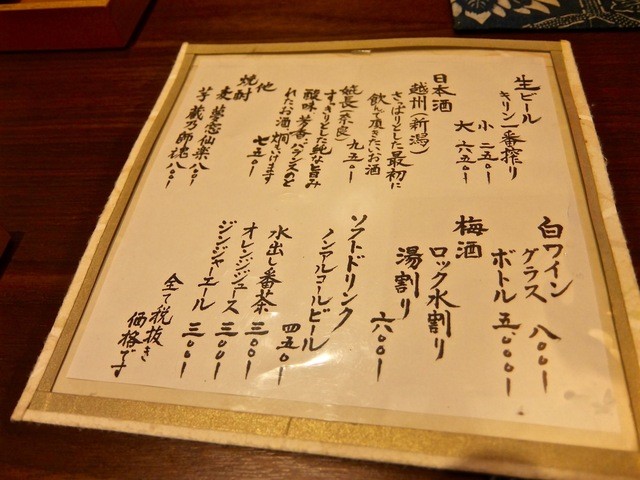 生ビール
キリン一番搾り
小 二五〇ー
大 六五〇ー
日本酒
越州(新潟)
さっぱりとした最初に
飲んで頂きたいお酒
九五〇ー
(奈良)
すっきりとした純な旨み
酸味、芳香、バランスのと
れたお酒、燗もいけます
七五〇ー
他
焼酎
麦 夢想仙楽 八〇〇ー
芋 蔵乃師魂 八〇〇ー
白ワイン
グラス 八〇〇ー
ボトル 五、〇〇〇ー
梅酒
ロック水割り
湯割り
六〇〇ー
ソフトドリンク
ノンアルコールビール
四五〇ー
水出し番茶 三〇〇ー
オレンジジュース 三〇〇ー
ジンジャーエール 三〇〇ー
全て税抜き
価格です